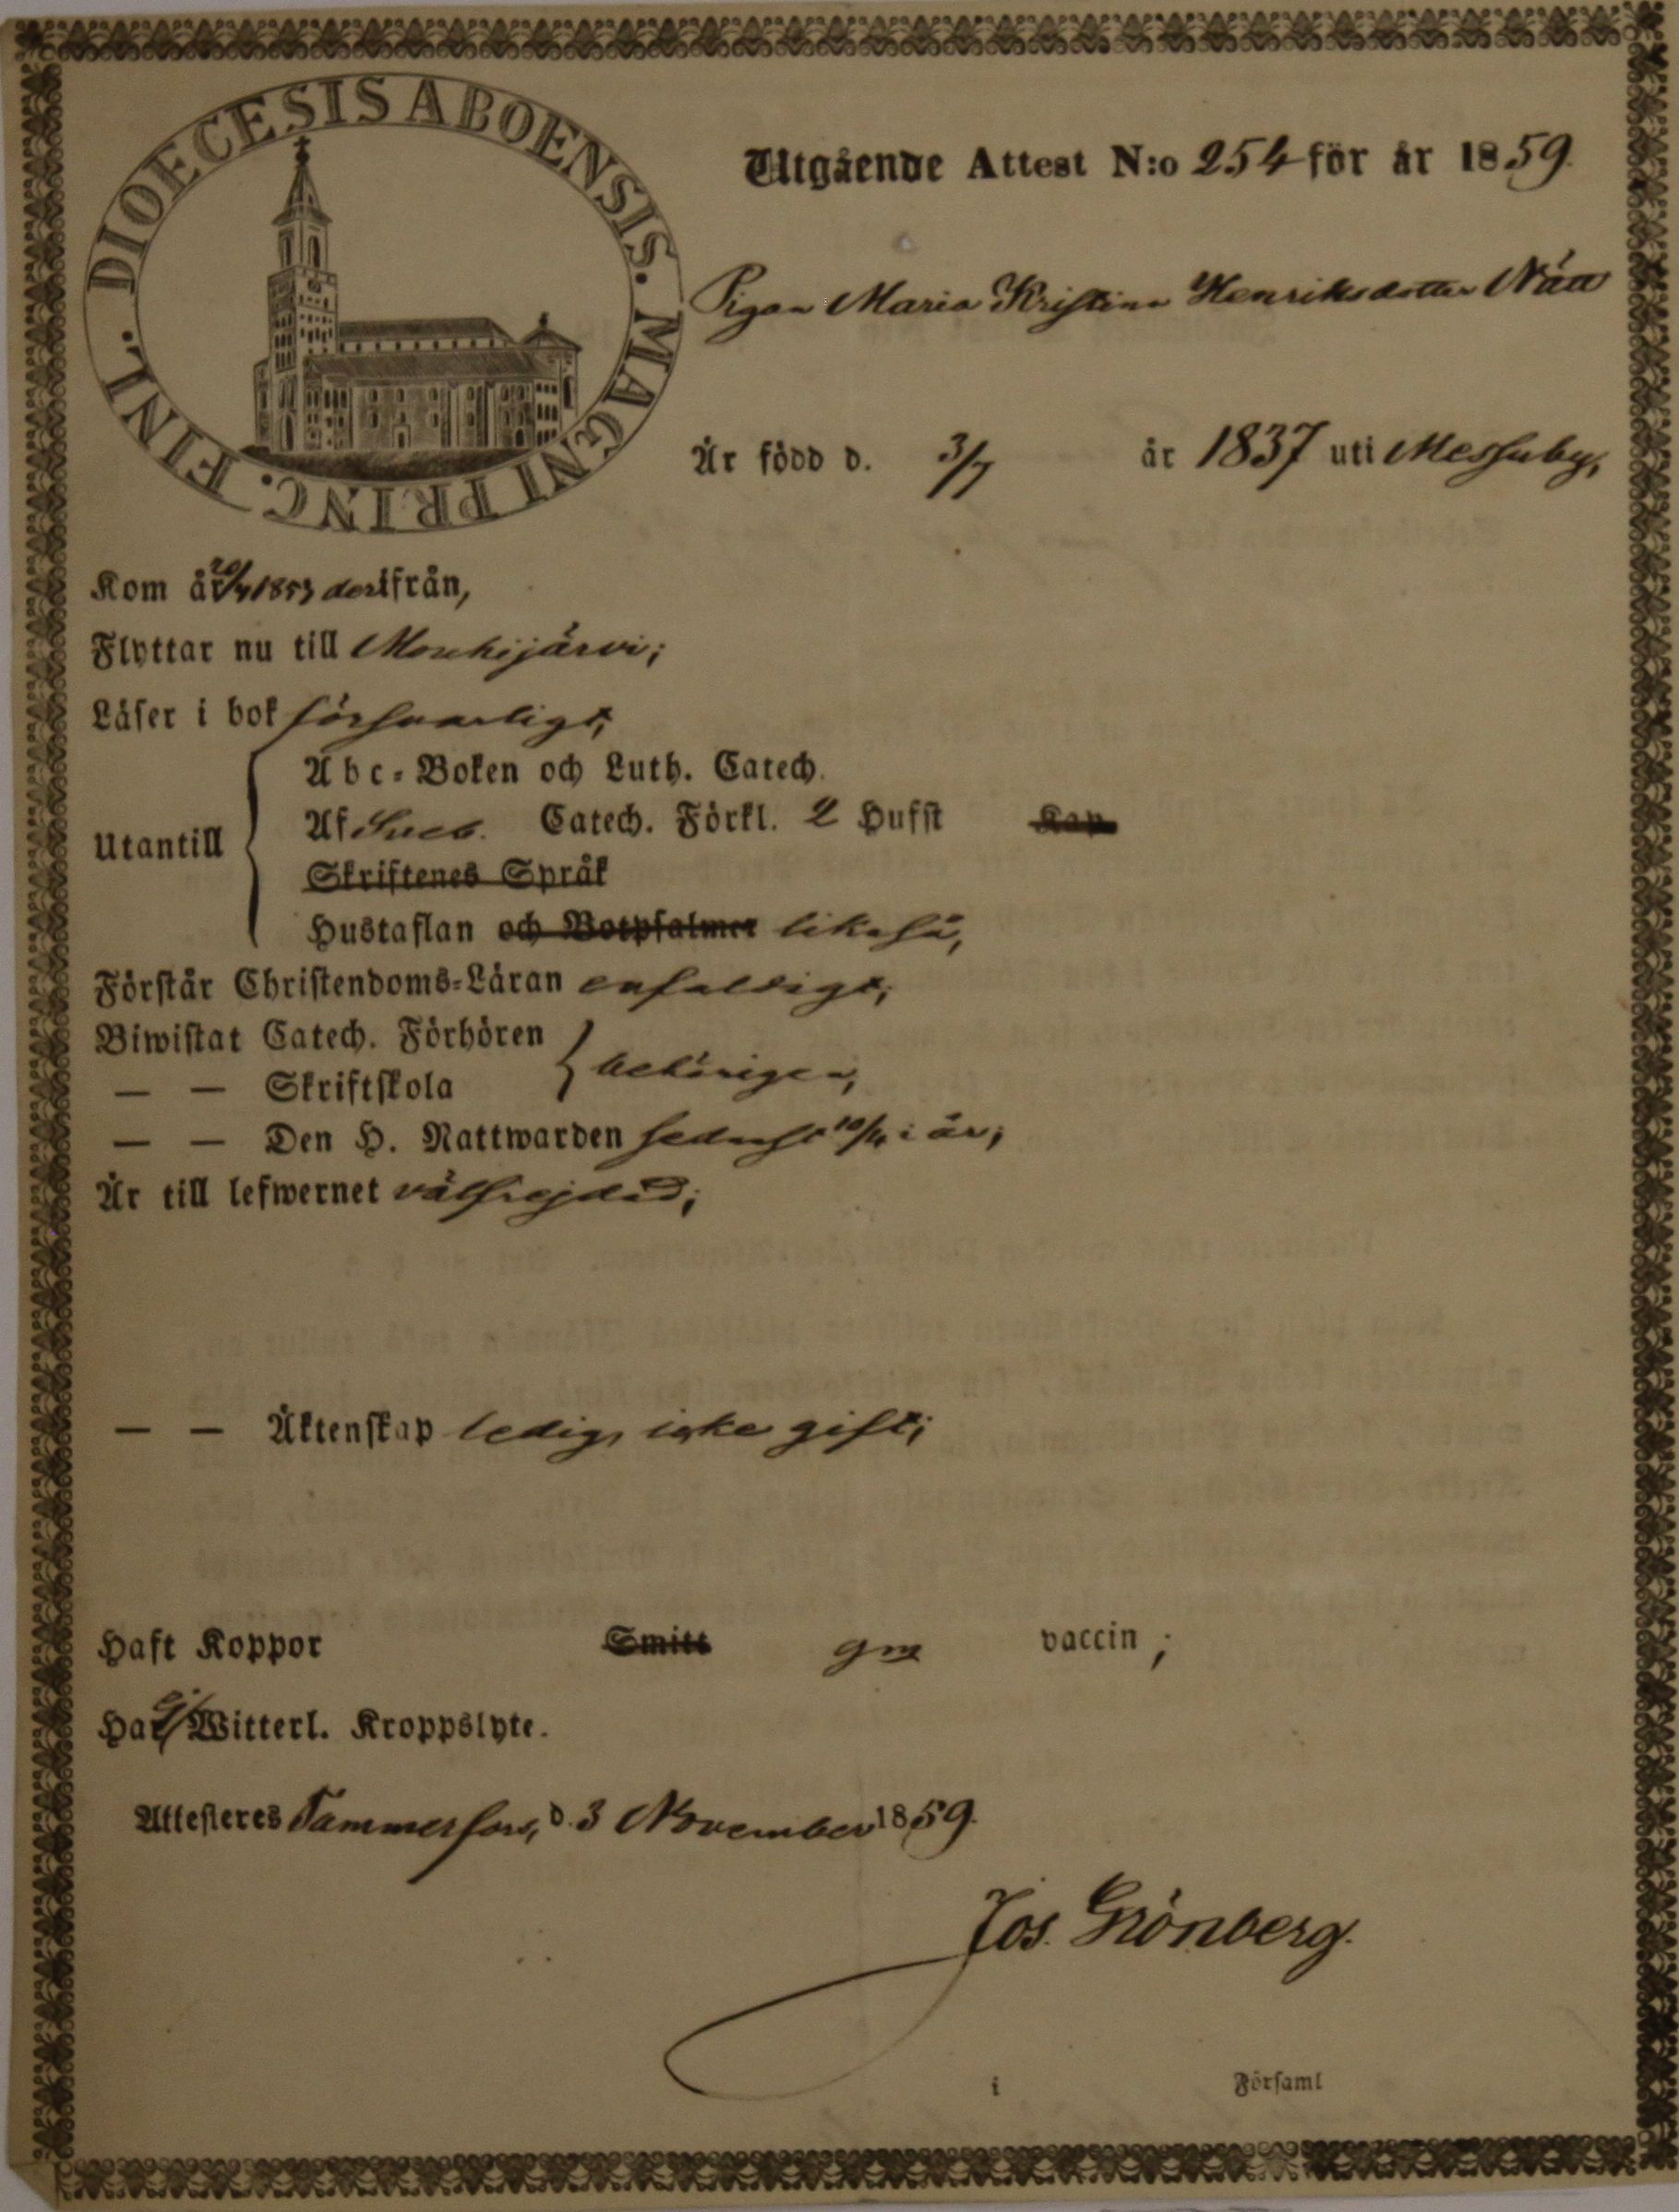 DIOECESIS ABOENSIS. MAGNI PRINC. FINL.
Utgående Attest N:o 254 för år 1859.
Pigan Maria Kristina Henriksdotter
Är född d. 3/7 år 1837 uti Messuby,
Kom år 20/4 1853 derifrån,
Flyttar nu till Mouhijärvi;
Läser i bok försvarligt,
Utantill
Abc-Boken och Luth. Catech.
Af Sveb. Catech. Förkl. 2 Hufst Kap
Skriftenes Språk
Hustaflan och Botpsalmer likaså,
Förstår Christendoms-Läran enfaldigt;
Biwistat Catech. Förhören
behörigen,
— — Skriftskola
— — Den H. Nattwarden sednast i år;
Är till lefwernet välfrejdad;
— — Äktenskap ledig, icke gift;
Haft Koppor Smitt gm vaccin;
Har ej Witterl. Kroppslyte.
Attesteres Tammerfors, d. 3 November 1859.
Jos. Grönberg.
i Församl